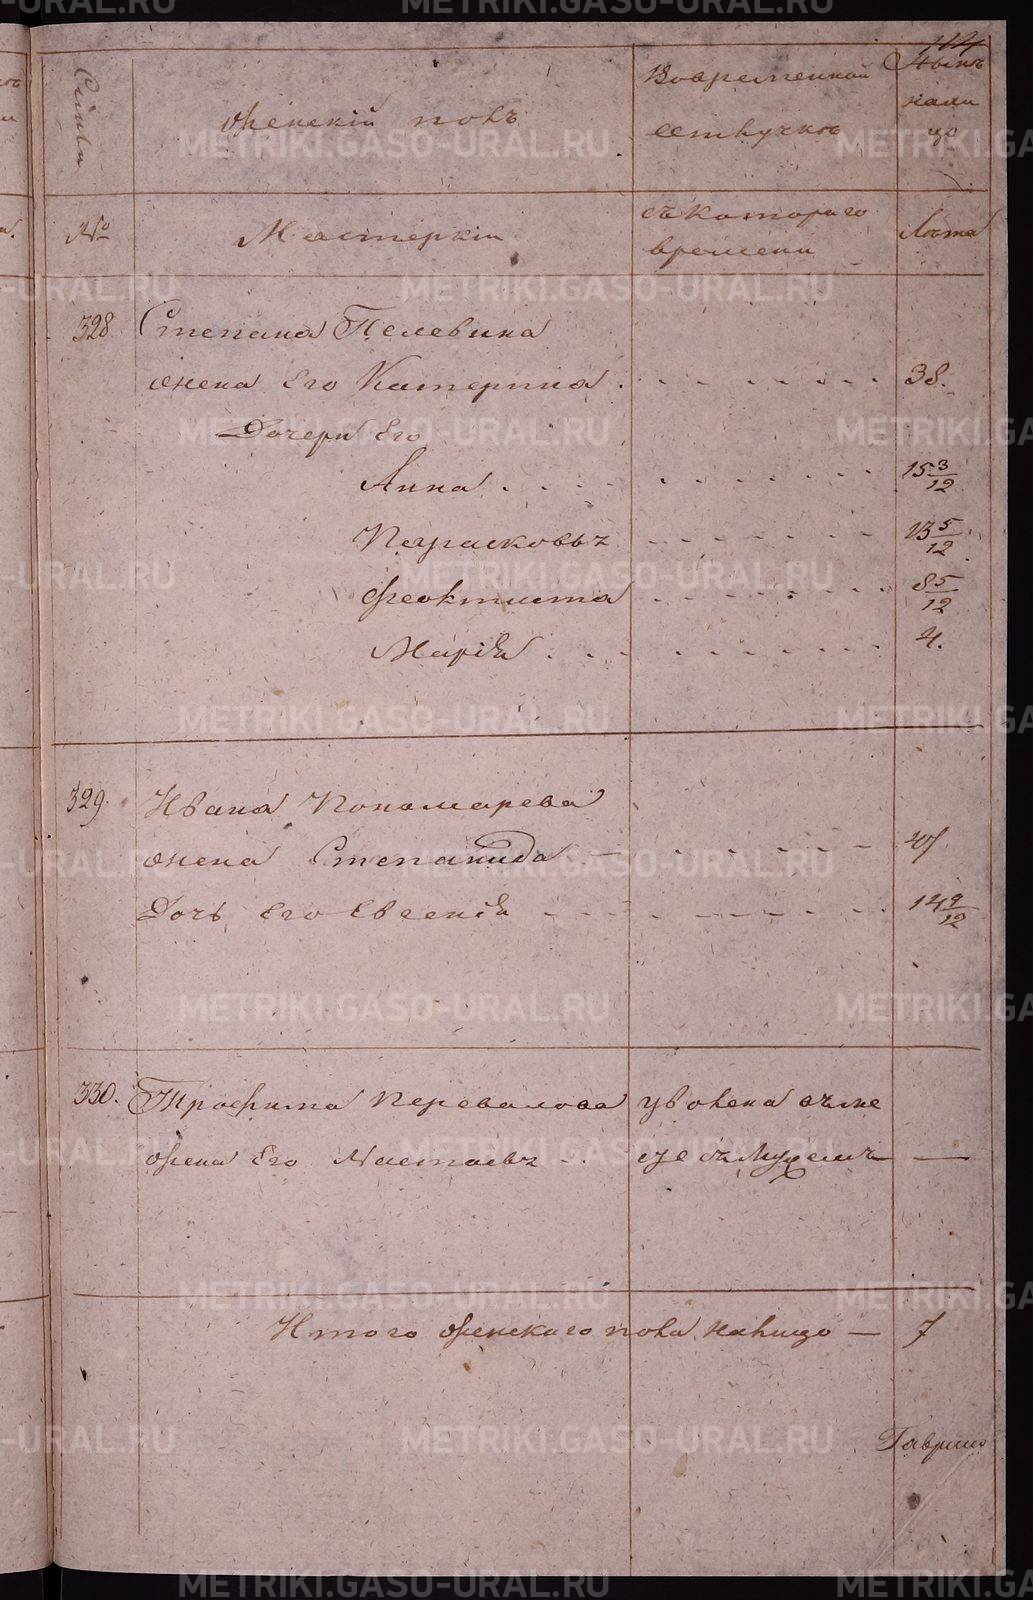 METRIKI.GASO-URAL.RU
114
Семьи
Женскій полъ
Вовременной
отлучкѣ
Нынѣ
нали
цо
№
Мастерскіи
съ котораго
времени
Лѣта
328
Степана Пелевина
жена Его Катерина
38.
Дочери Его
Анна
15 3/12
Парасковья
13 5/12
Феоктиста
8 5/12
Марія
4.
329.
Ивана Пономарева
жена Степанида
Дочь Его Евгенія
14 9/12
330.
Трофима Перевалова
жена Его Настасья
—
Итого женскаго пола налицо — 7